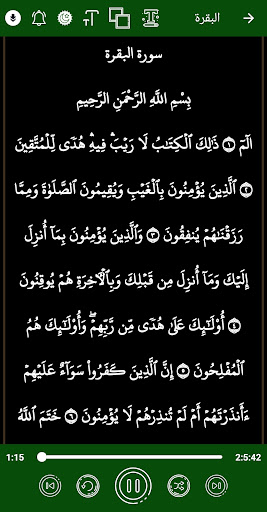 البقرة
سورة البقرة
بِسْمِ اللَّهِ الرَّحْمَٰنِ الرَّحِيمِ
الٓمٓ ۝١ ذَٰلِكَ ٱلْكِتَٰبُ لَا رَيْبَ ۛ فِيهِ ۛ هُدًى لِّلْمُتَّقِينَ
۝٢ ٱلَّذِينَ يُؤْمِنُونَ بِٱلْغَيْبِ وَيُقِيمُونَ ٱلصَّلَوٰةَ وَمِمَّا
رَزَقْنَٰهُمْ يُنفِقُونَ ۝٣ وَٱلَّذِينَ يُؤْمِنُونَ بِمَآ أُنزِلَ
إِلَيْكَ وَمَآ أُنزِلَ مِن قَبْلِكَ وَبِٱلْءَاخِرَةِ هُمْ يُوقِنُونَ
۝٤ أُو۟لَٰٓئِكَ عَلَىٰ هُدًى مِّن رَّبِّهِمْ ۖ وَأُو۟لَٰٓئِكَ هُمُ
ٱلْمُفْلِحُونَ ۝٥ إِنَّ ٱلَّذِينَ كَفَرُوا۟ سَوَآءٌ عَلَيْهِمْ
ءَأَنذَرْتَهُمْ أَمْ لَمْ تُنذِرْهُمْ لَا يُؤْمِنُونَ ۝٦ خَتَمَ ٱللَّهُ
1:15 2:5:42